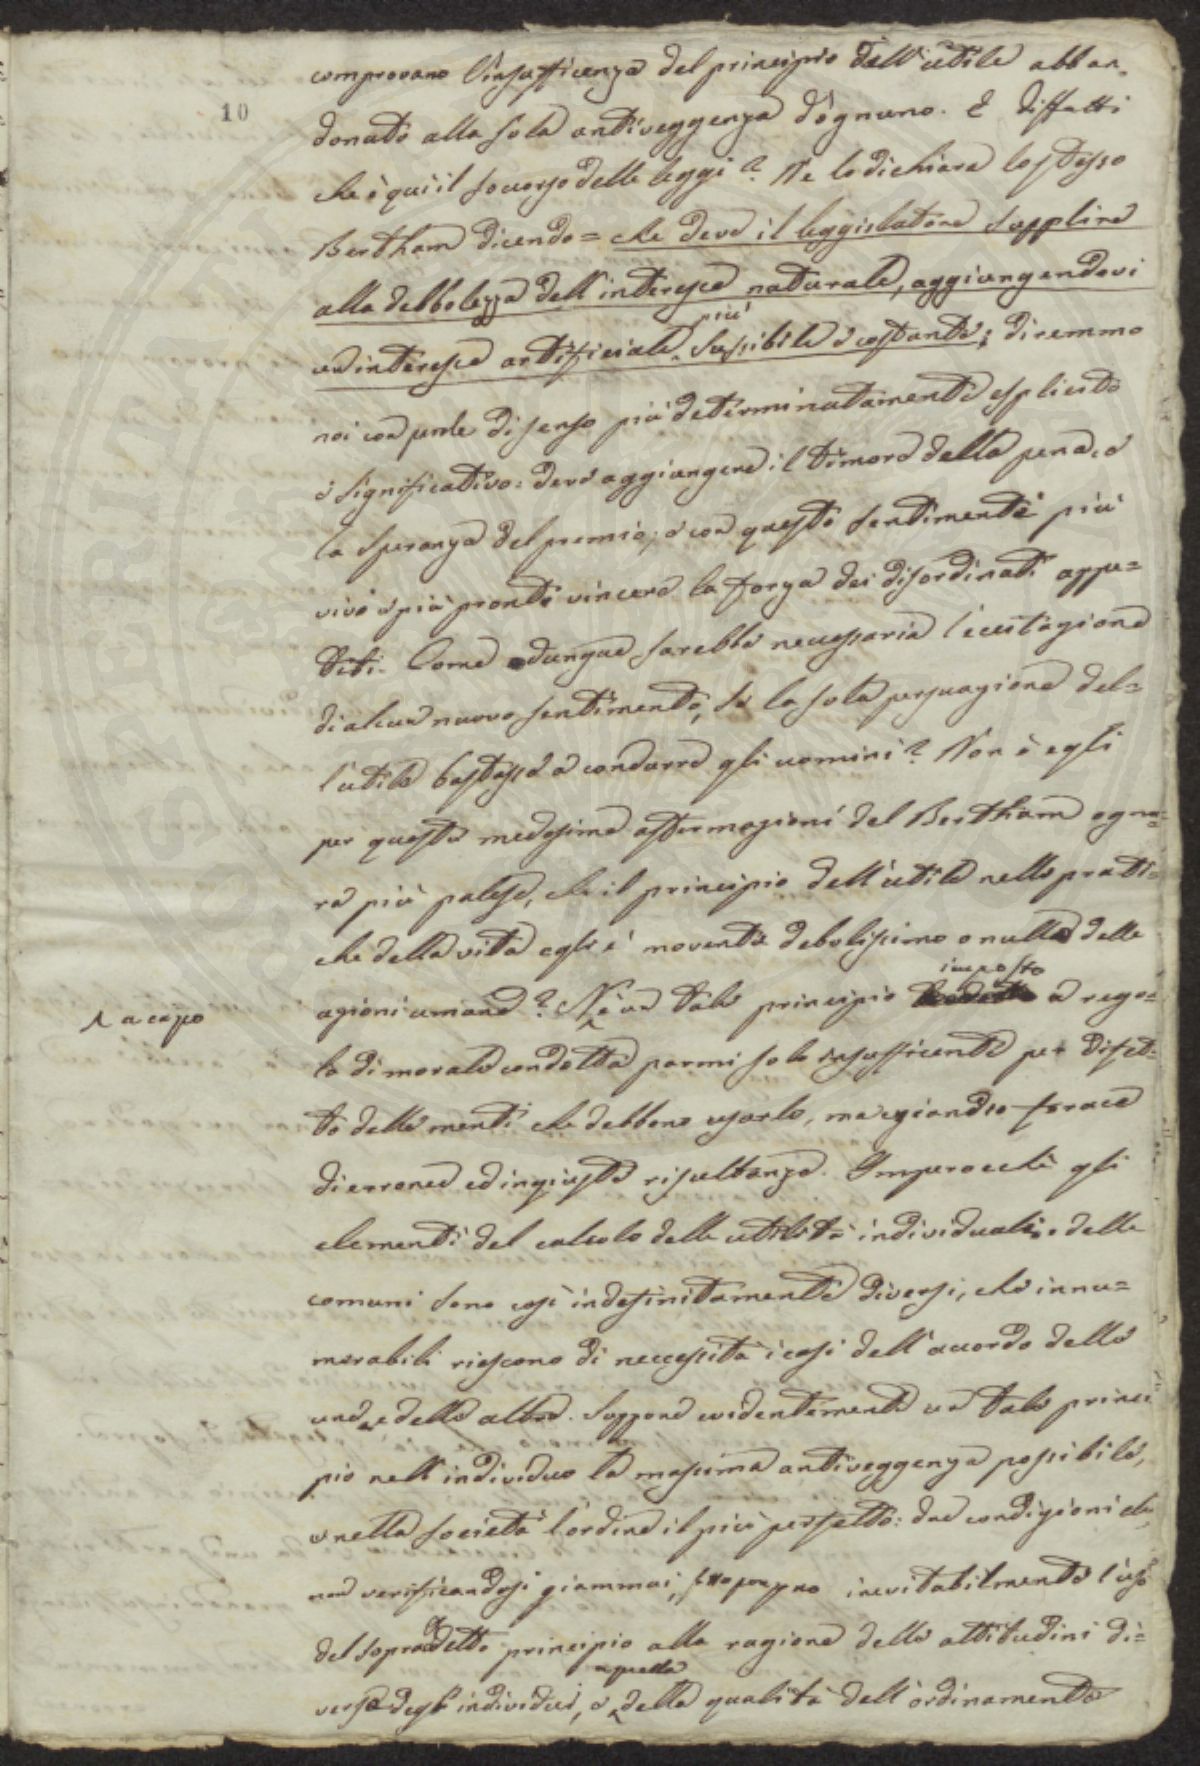 10
comprovano l'insufficenza del principio dell'utile abban-
donato alla sola antiveggenza d'ognuno. E diffatti
che è qui il soccorso delle leggi? Ne lo dichiara lo stesso
Bertham dicendo = che deve il legislatore supplire
alla debbolezza dell'interesse naturale, aggiungendovi
un interesse artificiale più sensibile e costante; diremmo
noi con parole di senso più determinatamente esplicito
e significativo: deve aggiungere il timore della pena, e
la speranza del premio; e con questi sentimenti più
vivi e più pronti vincere la forza dei disordinati appe=
titi. Come dunque sarebbe necessaria l'eccitazione
di alcun nuovo sentimento, se la sola persuazione del=
l'utile bastasse a condurre gli uomini? Non è egli
per queste medesime affermazioni del Bertham ogno=
ra più palese, che il principio dell'utile nelle prati=
che della vita egli è movente debolissimo o nullo delle
azioni umane? Nè un tale principio imposto a rego=
1 a capo
la di morale condotta parmi solo insufficente per difet=
to delle menti che debbono usarlo, ma eziandio ferace
di erronee ed ingiuste risultanze. Imperocchè gli
elementi del calcolo delle utilità individuali e delle
comuni sono così indefinitamente diversi, che innu=
merabili riescono di neccessità i casi dell'accordo delle
une e delle altre. Suppone evidentemente un tale princi
pio nell'individuo la massima antiveggenza possibile,
e nella società l'ordine il più perfetto: due condizioni che,
non verificandosi giammai, sottopongono inevitabilmente l'uso
del sopradetto principio alla ragione delle attitudini di=
verse degli individui, e a quella della qualità dell'ordinamento